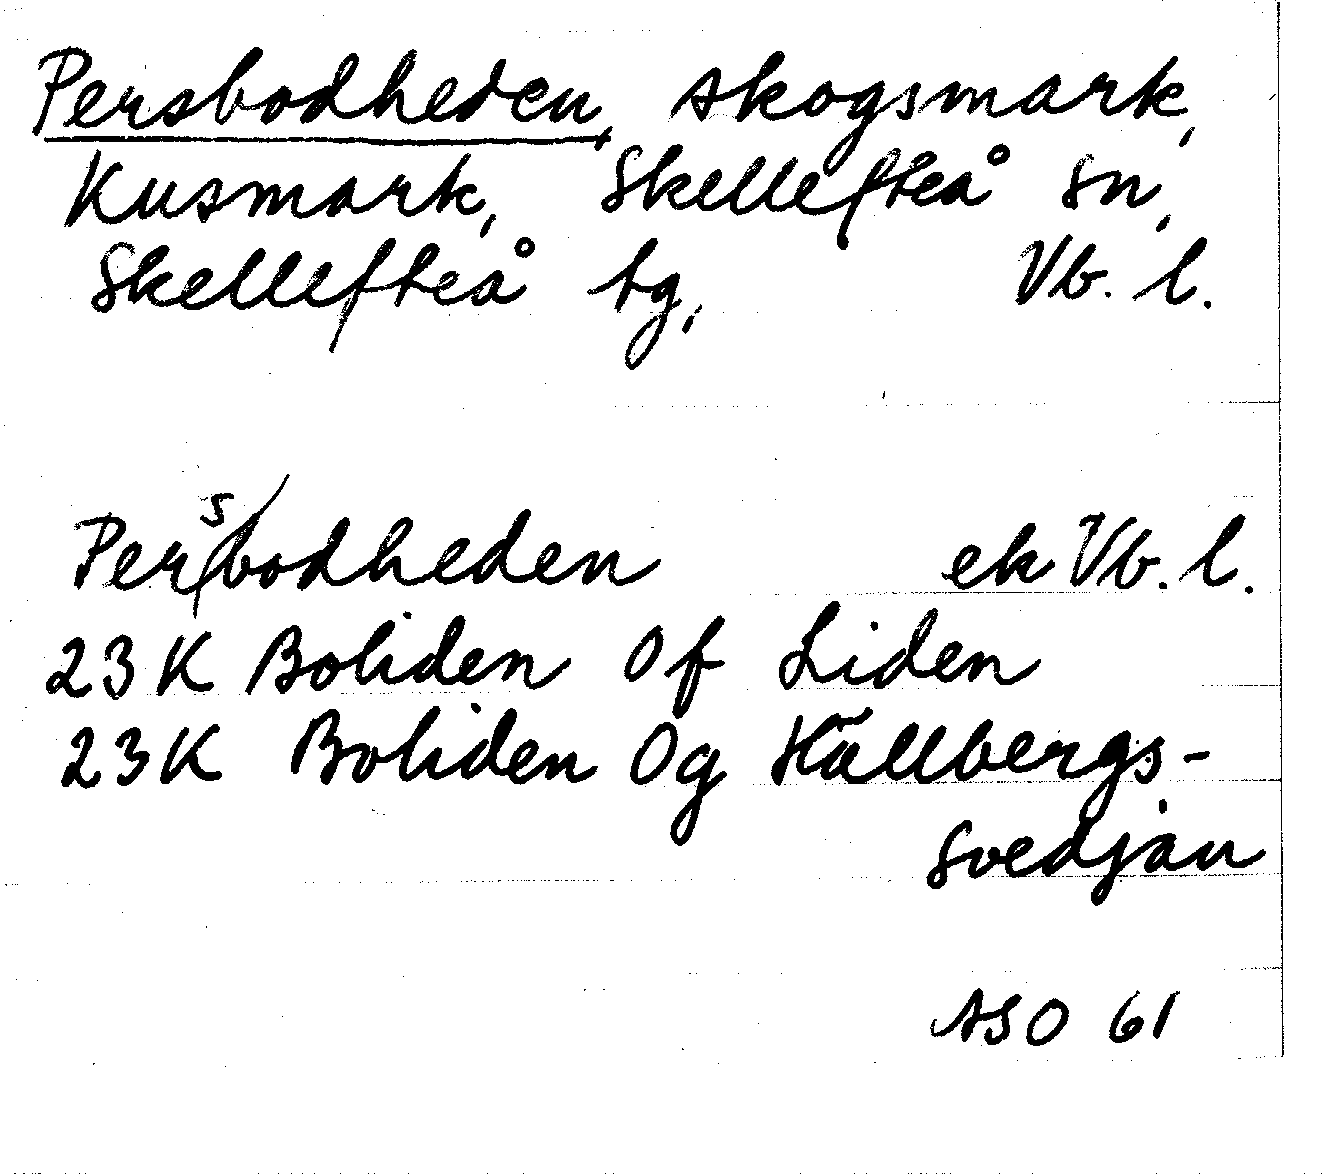 Persbodheden, skogsmark,
Kusmark, Skellefteå sn,
Skellefteå tg, Vb. l.
Persbodheden ek Vb. l.
23K Boliden Of Liden
23K Boliden Og Hällbergs-
svedjan
ASO 61